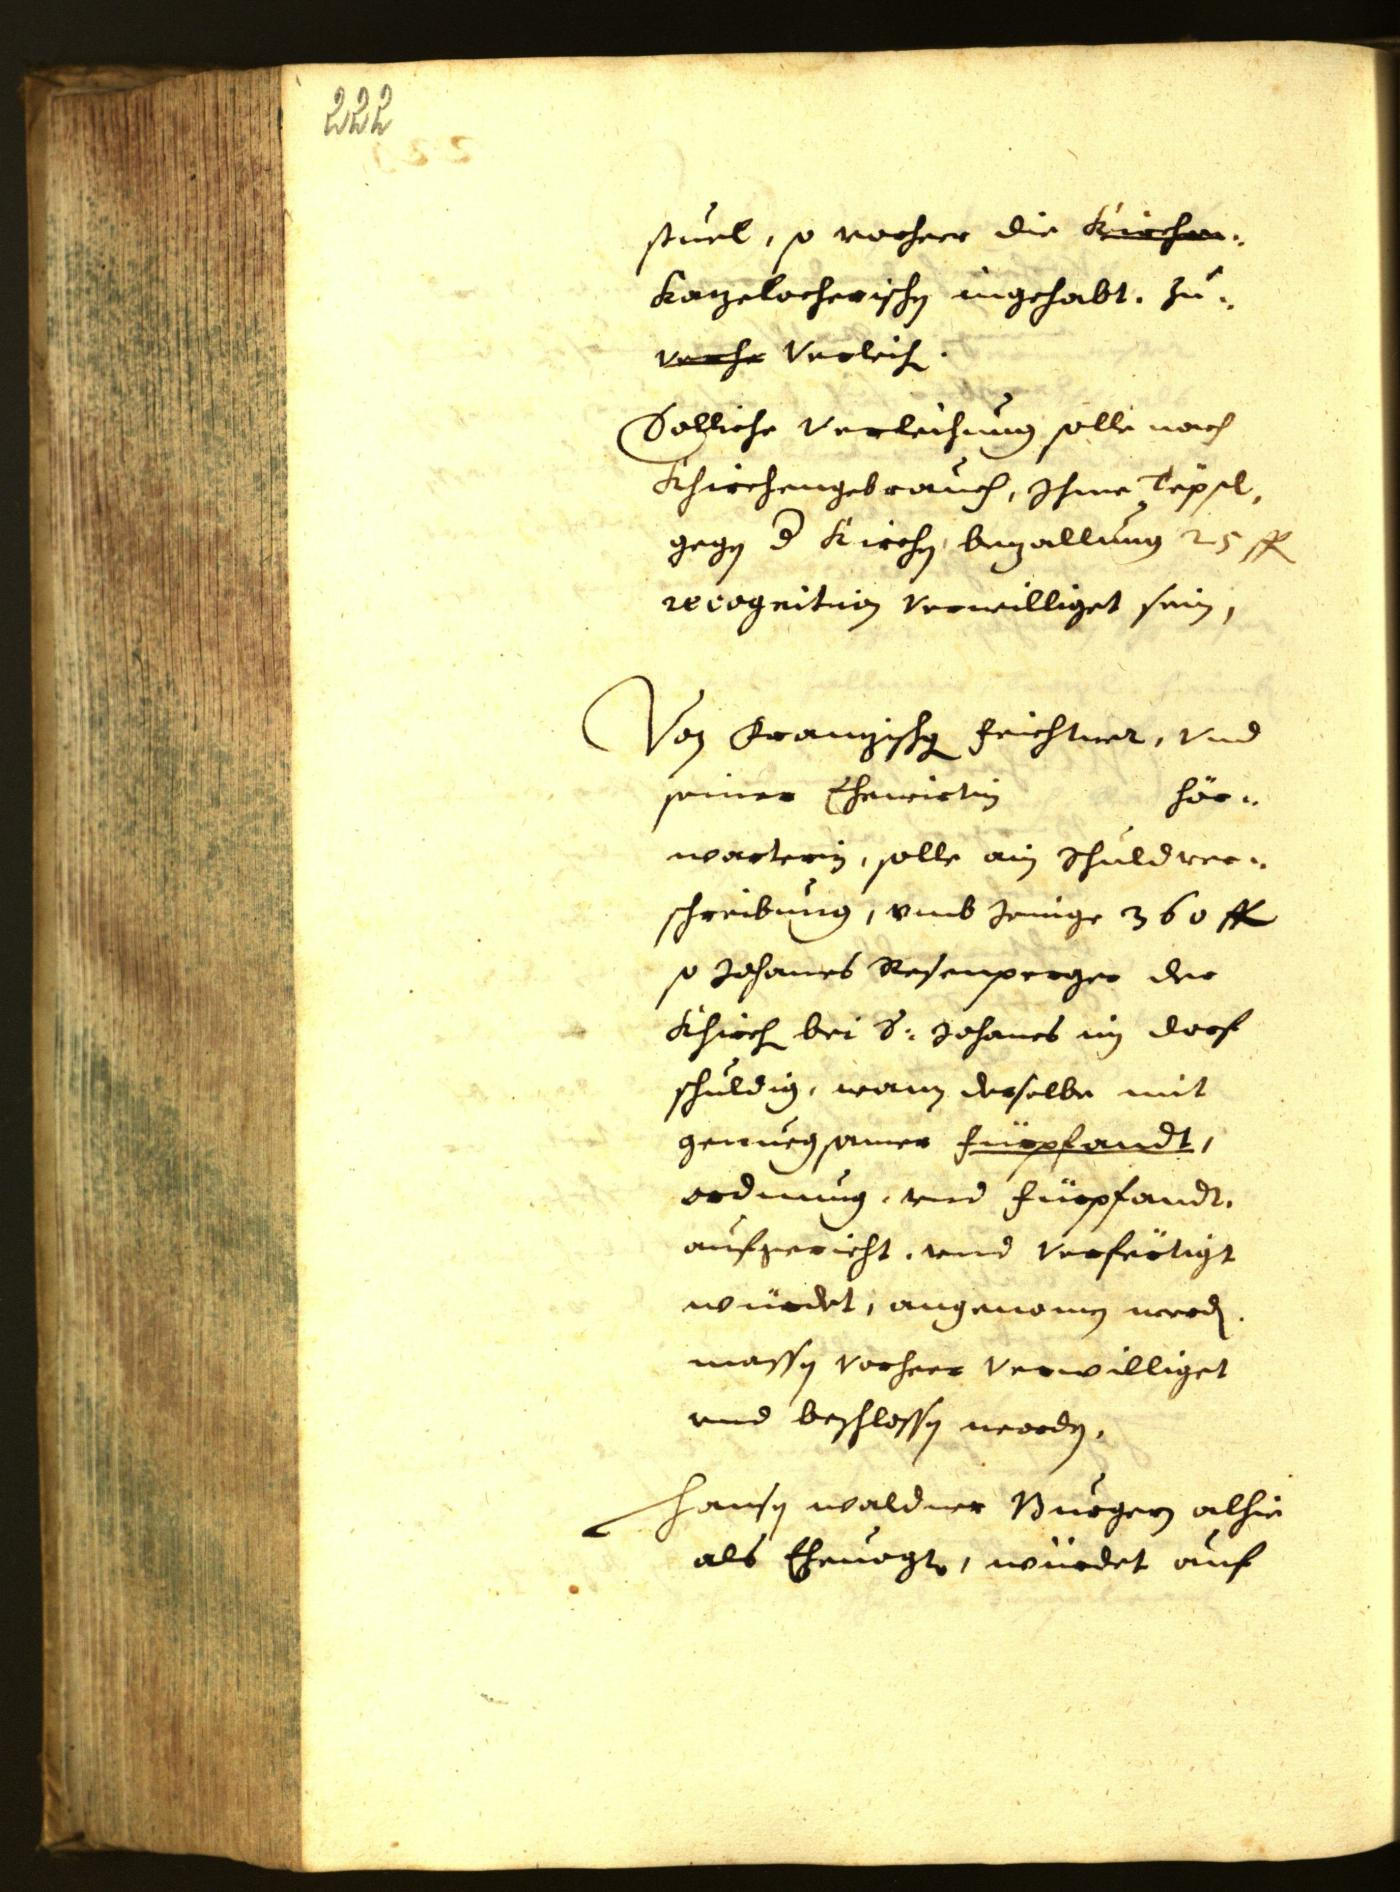 222
stuel, so vorheer die Kirchen.
Kazelocherischen ingehabt. zu.
verhe Verleich.
Solliche Verleichung solle nach
Khirchengebrauch, Ihme Tepsl,
gegen d Kirchen bezallung 25 fl
recognition Verwilliget sein,
Von Franzischg Feichtner, Vnd
seiner Ehewirtin hör..
warterin, solle ain Schuldver..
schreibung, vmb Jenige 360 fl
so Johanes Resenperger der
Khirch bei S: Johanes im dorf
schuldig, wann derselbe mit
genuegsamer fürpfandt,
ordnung, vnd fürpfandt.
aufgericht, vnd Verfertigt
würdet, angenomen werd.
massen Vorheer Verwilliget
vnd beschlossen worden.
Hansen waldner Burgern alhie
als Ehevogt, würdet auf